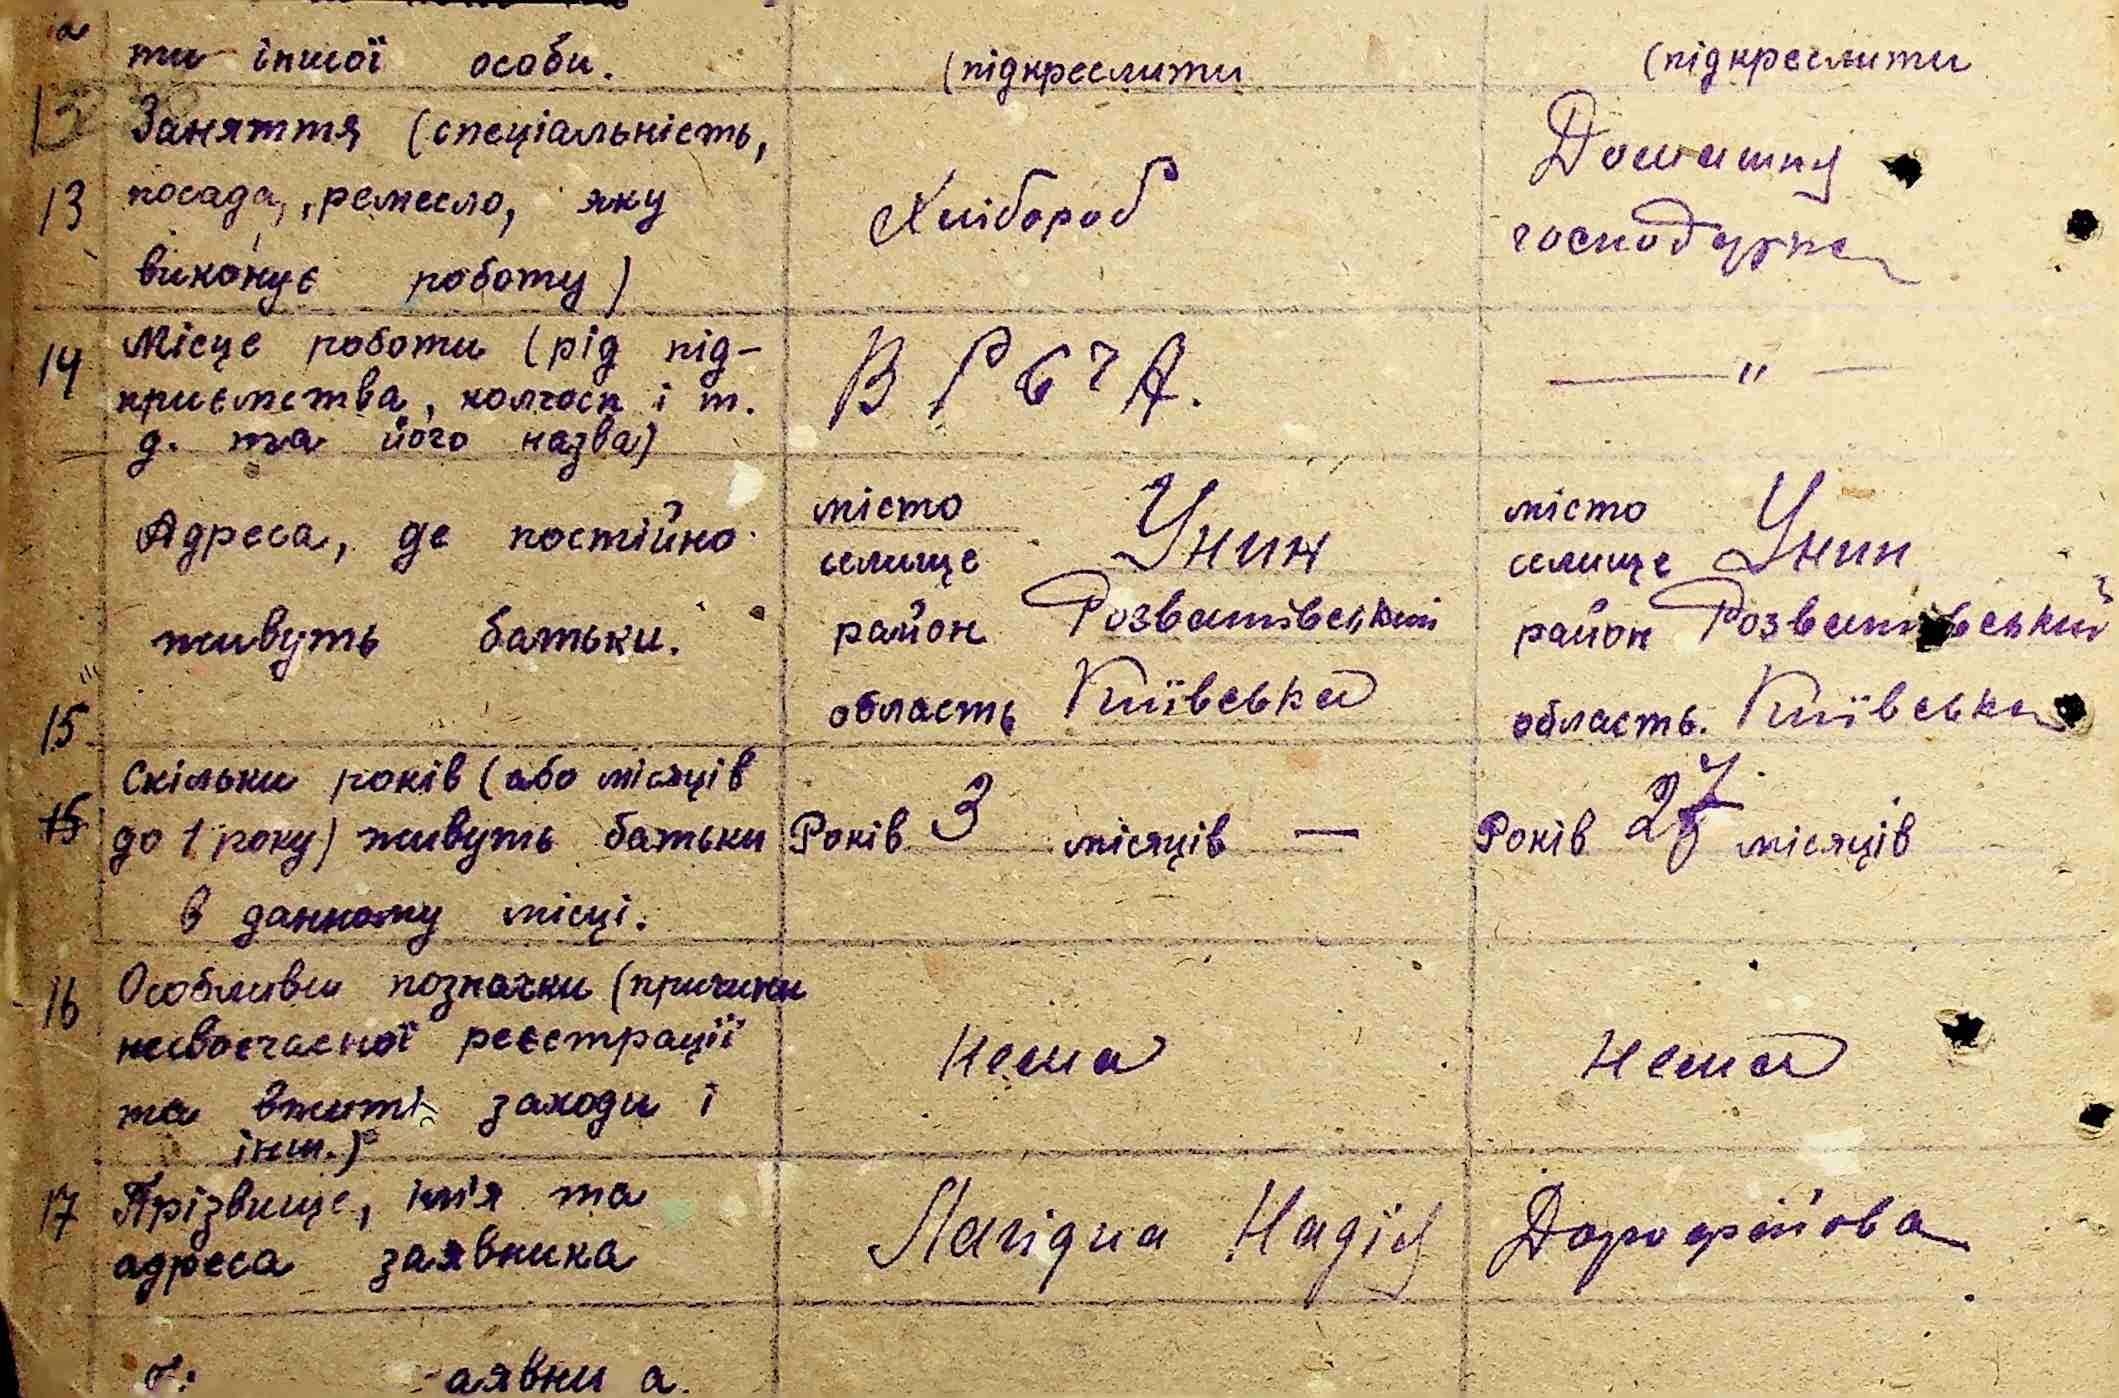 ти іншої особи. (підкреслити (підкреслити
13 Заняття (спеціальність,
посада, ремесло, яку
виконує роботу)
Хлібороб
Домашня
господарка
14 Місце роботи (рід під-
приємства, колгосп і т.
д. та його назва)
В Р С Ч А.
— " —
15 Адреса, де постійно
живуть батьки.
місто
селище Унин
район Розважівський
область Київська
місто
селище Унин
район Розважівський
область. Київська
15 Скільки років (або місяців
до 1 року) живуть батьки
в данному місці.
Років 3 місяців —
Років 27 місяців
16 Особливи позначки (причини
несвоєчасної реєстрації
та вжиті заходи і
інш.)
нема
нема
17 Прізвище, ім'я та
адреса заявника
Лагідна Надія Дорофійова